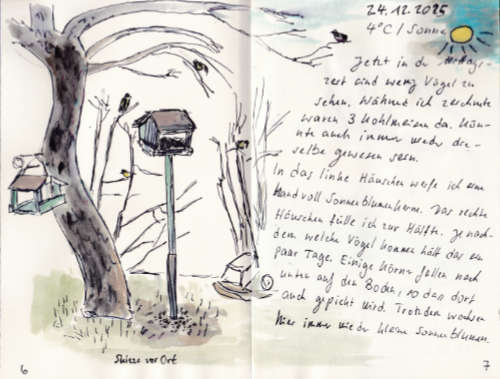 24.12.2025
4°C / Sonne
Jetzt in der Mittags-
zeit sind wenig Vögel zu
sehen. Während ich zeichnete
waren 3 Kohlmeisen da. Kön-
nte auch immer wieder die-
selbe gewesen sein.
In das linke Häuschen werfe ich eine
Handvoll Sonnenblumenkerne. Das rechte
Häuschen fülle ich zur Hälfte. Je nach-
dem welche Vögel kommen hält das ein
paar Tage. Einige Körner fallen nach
unten auf den Boden, so dass dort
auch gepickt wird. Trotzdem wachsen
hier immer wieder kleine Sonnenblumen.
Skizze vor Ort
6
7